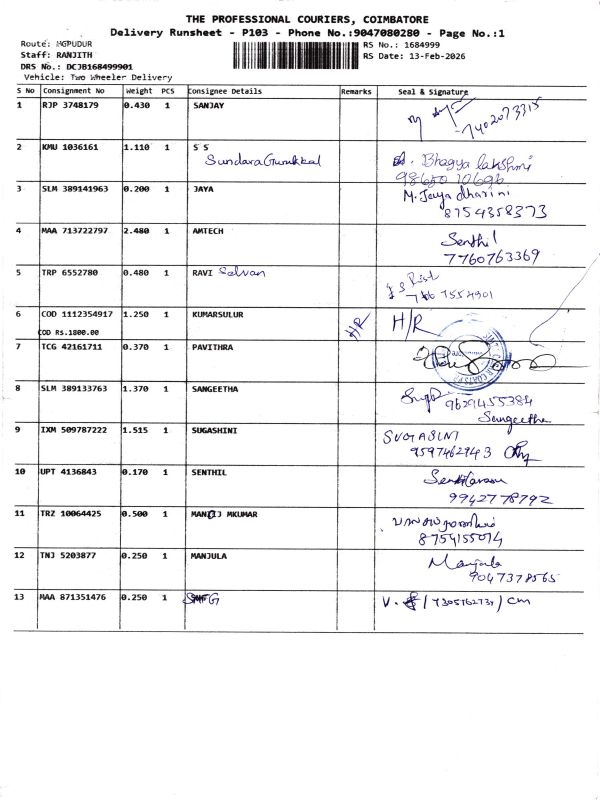 THE PROFESSIONAL COURIERS, COIMBATORE
Delivery Runsheet - P103 - Phone No.:9047080280 - Page No.:1
Route: MGPUDUR
Staff: RANJITH
DRS No.: DCJB168499901
Vehicle: Two Wheeler Delivery
RS No.: 1684999
RS Date: 13-Feb-2026
S No Consignment No Weight PCS Consignee Details Remarks Seal & Signature
1 RJP 3748179 0.430 1 SANJAY 7402073315
2 KMU 1036161 1.110 1 S S Bhagya lakshmi
Sundara Gurukkal 9865010696
3 SLM 389141963 0.200 1 JAYA M. Jeya dharini
8754358373
4 MAA 713722797 2.480 1 AMTECH Senthil
7760763369
5 TRP 6552780 0.480 1 RAVI Selvan
6 COD 1112354917 1.250 1 KUMARSULUR H/R H/R
COD RS.1800.00
7 TCG 42161711 0.370 1 PAVITHRA
8 SLM 389133763 1.370 1 SANGEETHA 9629455384
Sangeetha
9 IXM 509787222 1.515 1 SUGASHINI SUGASINI
9597462943
10 UPT 4136843 0.170 1 SENTHIL
9942778792
11 TRZ 10064425 0.500 1 MANOJ MKUMAR
8754155074
12 TNJ 5203877 0.250 1 MANJULA Manjula
9047378565
13 MAA 871351476 0.250 1 V. /7305762737/ cm